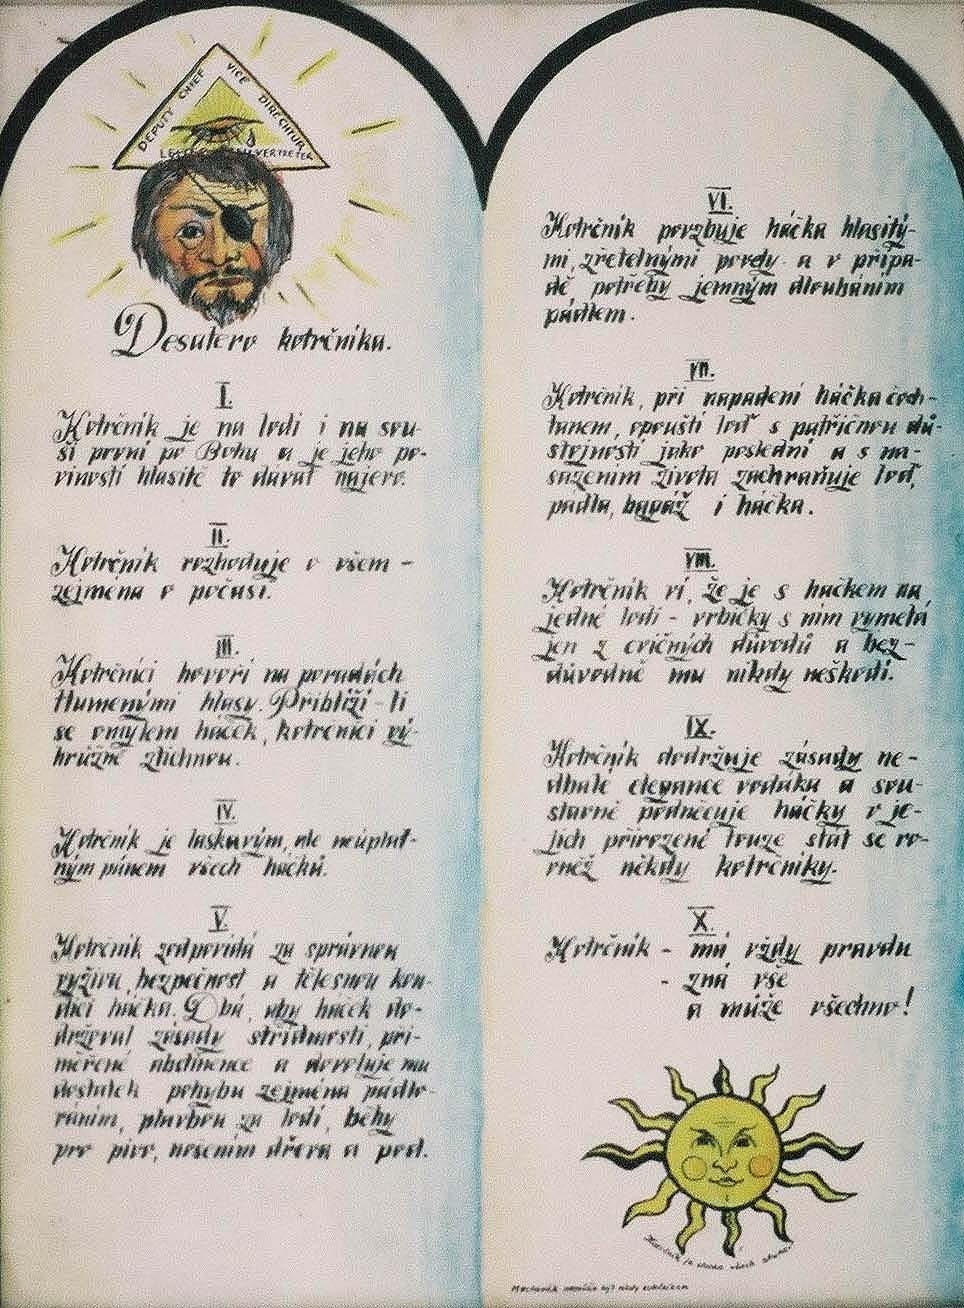 DEPUTY CHIEF
VICE DIREKTUR
Desatero kotrčníka.
I.
Kotrčník je na lodi i na sou-
ši první po Bohu a je jeho po-
vinností hlasitě to dávat najevo.
II.
Kotrčník rozhoduje o všem -
zejména o počasí.
III.
Kotrčníci hovoří na poradách
tlumenými hlasy. Přiblíží-li
se omylem háček, kotrčníci vý-
hrůžně ztichnou.
IV.
Kotrčník je laskavým, ale neúplat-
ným pánem všech háčků.
V.
Kotrčník zodpovídá za správnou
výživu, bezpečnost a tělesnou kon-
dici háčka. Dbá, aby háček do-
držoval zásady střídmosti, při-
měřené abstinence a dovoluje mu
dostatek pohybu zejména pádlo-
váním, plavbou za lodí, běhy
pro pivo, nošením dřeva a pod.
VI.
Kotrčník povzbuje háčka hlasitý-
mi, zřetelnými povely a v přípa-
dě potřeby jemným dloubáním
pádlem.
VII.
Kotrčník, při napadení háčka čoch-
tanem, opouští loď s patřičnou dů-
stojností jako poslední a s na-
sazením života zachraňuje loď,
pádla, bagáž i háčka.
VIII.
Kotrčník ví, že je s háčkem na
jedné lodi - vrbičky s ním vymetá
jen z cvičných důvodů a bez-
důvodně mu nikdy neškodí.
IX.
Kotrčník dodržuje zásady ne-
dbalé elegance vodáka a sou-
stavně podněcuje háčky v je-
jich přirozené touze stát se ro-
vněž někdy kotrčníky.
X.
Kotrčník - má vždy pravdu
- zná vše
a může všechno!